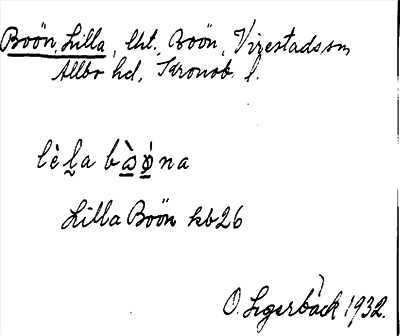 Boön, Lilla, lht. Boön, Virestads sn,
Allbo hd, Kronob. l.
lèl̰a bàø̀na
Lilla Boön kb26
O. Legerbäck 1932.